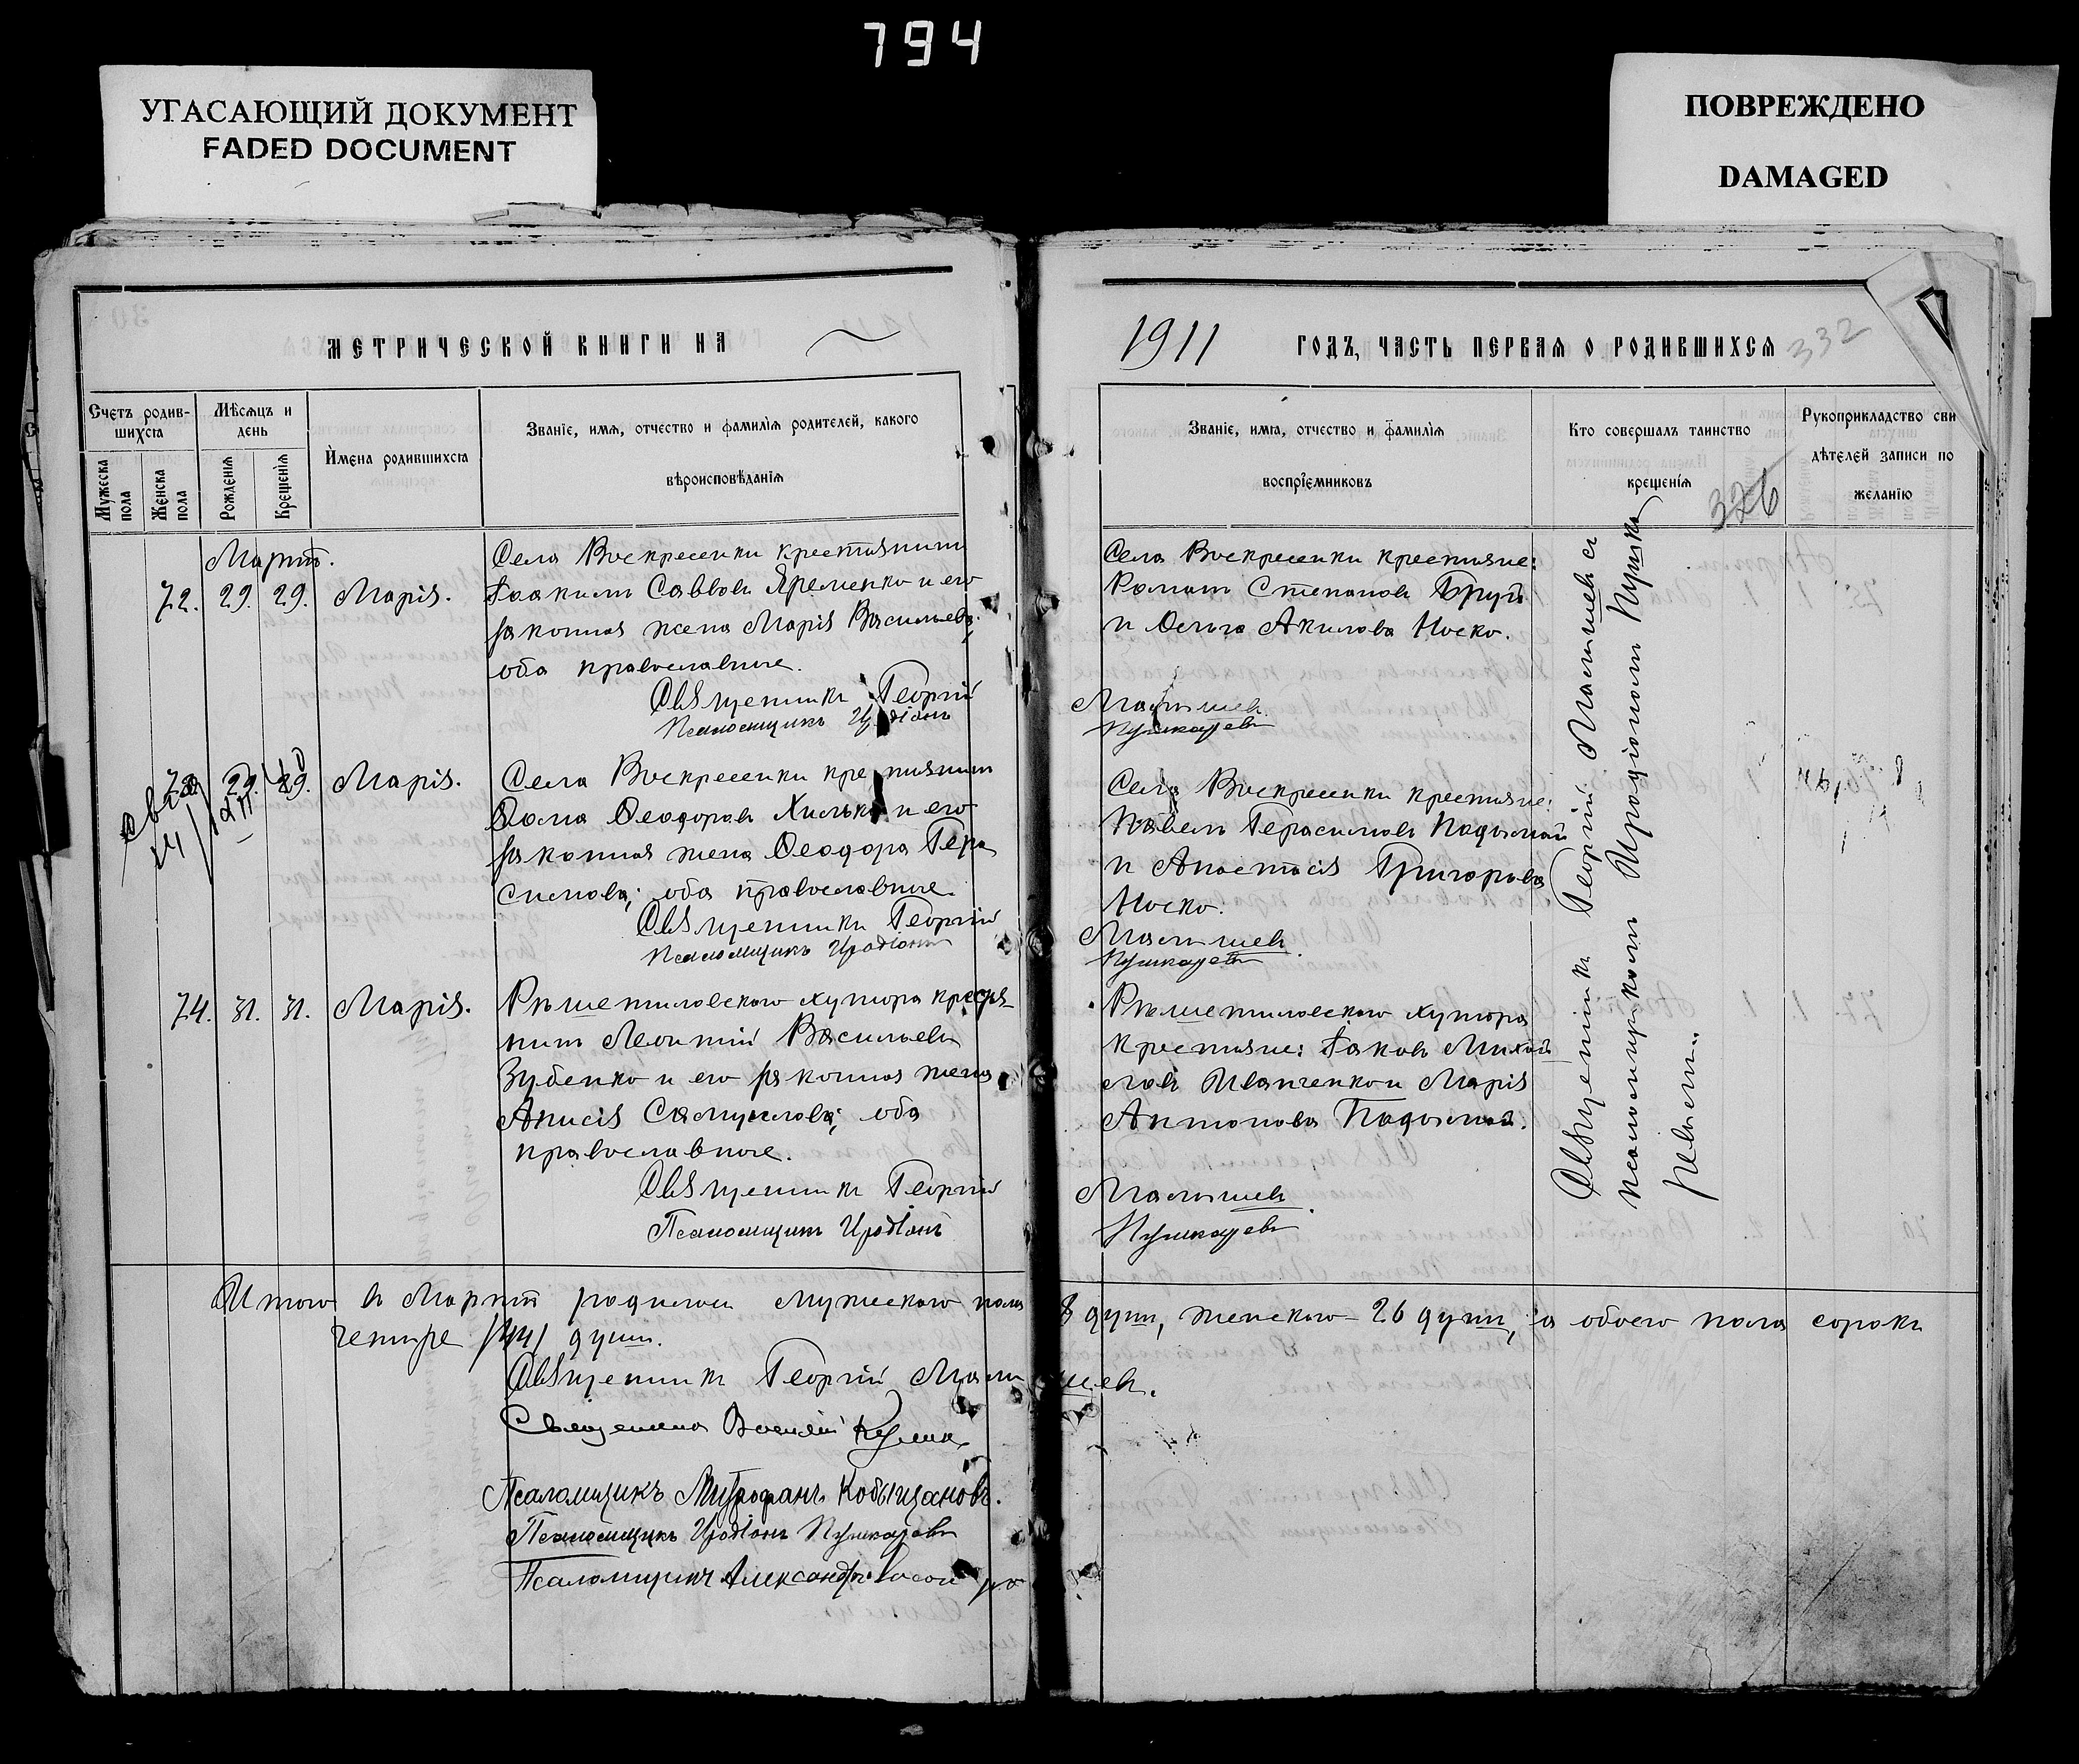 794
УГАСАЮЩИЙ ДОКУМЕНТ
FADED DOCUMENT
ПОВРЕЖДЕНО
DAMAGED
МЕТРИЧЕСКОЙ КНИГИ НА
Счетъ родив-
шихся
Мужеска пола
Женска пола
Мѣсяцъ и день
Рожденія
Крещенія
Имена родившихся
Званіе, имя, отчество и фамилія родителей, какого
вѣроисповѣданія
Мартъ.
72. 29. 29. Марія.
Села Воскресенки крестьянинъ
Іоакимъ Саввовъ Яременко и его
законная жена Марія Васильева;
оба православные.
Священникъ Георгій
Псаломщикъ Иродіонъ
73. 29. 29. Марія.
Села Воскресенки крестьянинъ
Ѳома Ѳеодоровъ Хилько и его
законная жена Ѳеодора Гера
симова; оба православные.
Священникъ Георгій
Псаломщикъ Иродіонъ
74. 31. 31. Марія.
Рѣшетиловскаго хутора крестья-
нинъ Леонтій Васильевъ
Зубенко и его законная жена
Анисія Самуилова; оба
православные.
Священникъ Георгій
Псаломщикъ Иродіонъ
1911 ГОДЪ, ЧАСТЬ ПЕРВАЯ О РОДИВШИХСЯ 332
Званіе, имя, отчество и фамилія
воспріемниковъ
Кто совершалъ таинство
крещенія
326
Рукоприкладство сви
дѣтелей записи по
желанію
Села Воскресенки крестьяне:
Романъ Степановъ
и Ольга Акилова Носко.
Малышевъ
Пушкаревъ
Села Воскресенки крестьяне:
Павелъ Герасимовъ
и Анастасія Григорьева
Носко.
Малышевъ.
Пушкаревъ
Рѣшетиловскаго хутора
крестьяне: Іаковъ Михай
ловъ Иванченко и Марія
Антонова
Малышевъ.
Пушкаревъ
Священникъ Георгій Малышевъ съ
псаломщикомъ Иродіономъ Пушка
ревымъ.
Итого въ Мартѣ родилось мужескаго пола 8 душъ, женскаго - 26 душъ, а обоего пола сорокъ
четыре /44/ душъ.
Священникъ Георгій Малышевъ.
Священникъ Василій
Псаломщикъ Митрофанъ Кобыщановъ.
Псаломщикъ Иродіонъ Пушкаревъ
Псаломщикъ Александръ